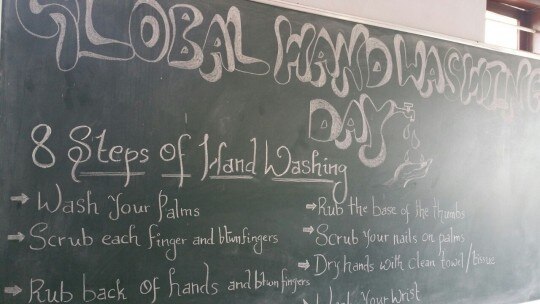 GLOBAL HAND WASHING
DAY
8 Steps of Hand Washing
⇒ Wash Your Palms
⇒ Scrub each finger and btwn fingers
⇒ Rub back of hands and btwn fingers
⇒ Rub the base of the thumbs
⇒ Scrub Your nails on palms
⇒ Dry hands with clean towel/tissue
Your Wrist